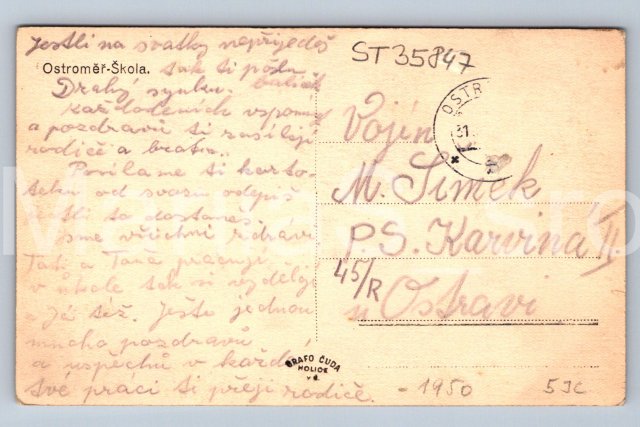 Jestli na svátky nepřijedeš
tak ti pošlu
balíček
Ostroměř-Škola.
Drahý synku.
Každodeních vspomín
a pozdravů ti zasílají
rodiče a bratr.
Posíláme ti
od
jestli to dostaneš.
Jsme všichni zdrávi
Táta a Jana pracují
v tak si vydělají
a já též. Ještě jednou
mnoho pozdravů
a úspěchů v každé
tvé práci ti přejí rodiče.
ST35847
OSTR
31.
Vojín
M. Šimek
P.S. Karvina II
45/R
u Ostravi
GRAFO ČUDA
HOLICE
- 1950
5JC